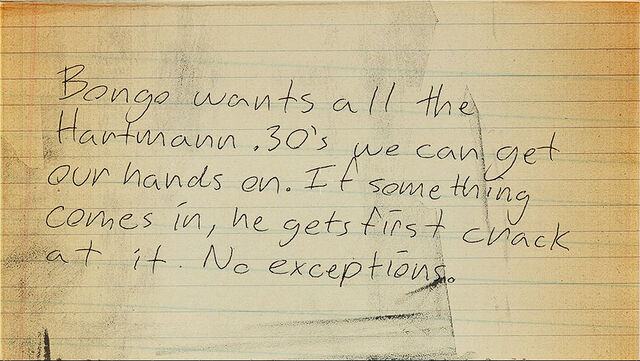 Bongo wants all the
Hartmann .30's we can get
our hands on. If something
comes in, he gets first crack
at it. No exceptions.